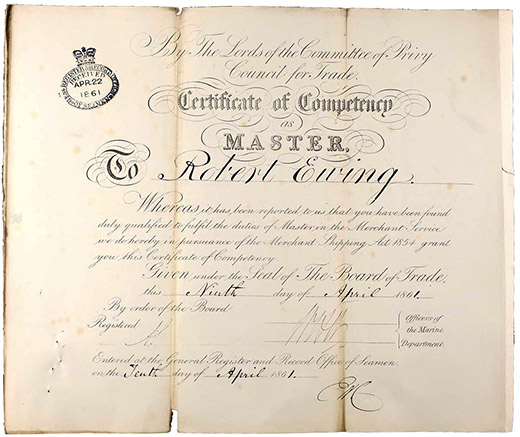 By The Lords of the Committee of Privy
Council for Trade.
Certificate of Competency
as
MASTER.
To Robert Ewing.
Whereas it has been reported to us that you have been found
duly qualified to fulfil the duties of Master in the Merchant Service
we do hereby in pursuance of the Merchant Shipping Act 1854 grant
you this Certificate of Competency
Given under the Seal of The Board of Trade.
this Ninth day of April 1861.
By order of the Board
Registered
Officers of
the Marine
Department.
Entered at the General Register and Record Office of Seamen
on the Tenth day of April 1861.
RECEIVED
APR. 22
1861